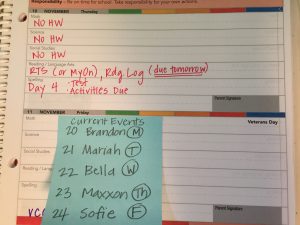 Responsibility – Be on time for school. Take responsibility for your own actions.
10 NOVEMBER Thursday
Math
NO HW
Science
NO HW
Social Studies
NO HW
Reading / Language Arts
RTS (or MyOn), Rdg. Log (due tomorrow)
Spelling
Day 4 : Test
Activities Due
Parent Signature
11 NOVEMBER Friday
Math
Veterans Day
Science
Social Studies
Reading / Lang
Spelling
Parent Signature
Current Events
20 Brandon (M)
21 Mariah (T)
22 Bella (W)
23 Maxxon (Th)
24 Sofie (F)